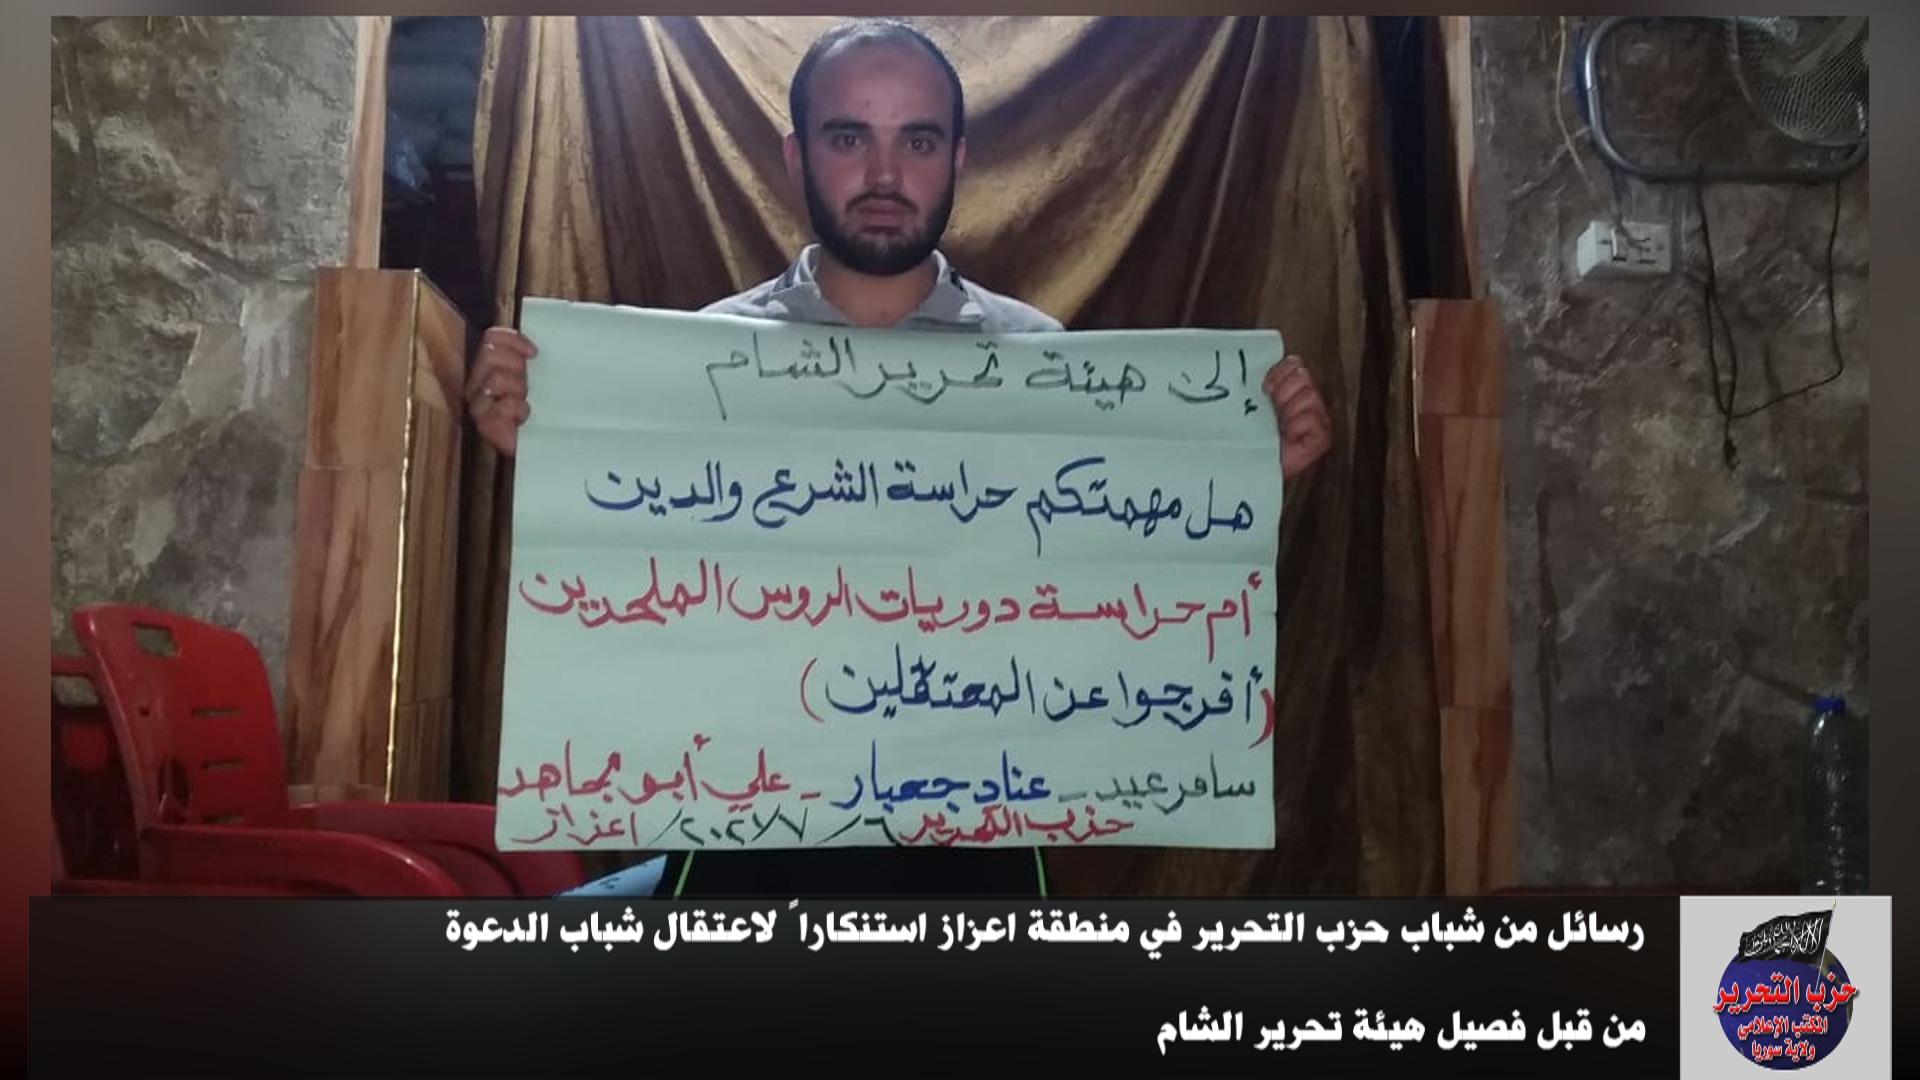 إلى هيئة تحرير الشام
هل مهمتكم حراسة الشرع والدين
أم حراسة دوريات الروس الملحدين
(أفرجوا عن المعتقلين)
سامر عيد - عناد جعبار - علي أبو مجاهد
حزب التحرير ٦/٧/٢٠٢١/ اعزاز
رسائل من شباب حزب التحرير في منطقة اعزاز استنكاراً لاعتقال شباب الدعوة
من قبل فصيل هيئة تحرير الشام
حزب التحرير
المكتب الإعلامي
ولاية سوريا